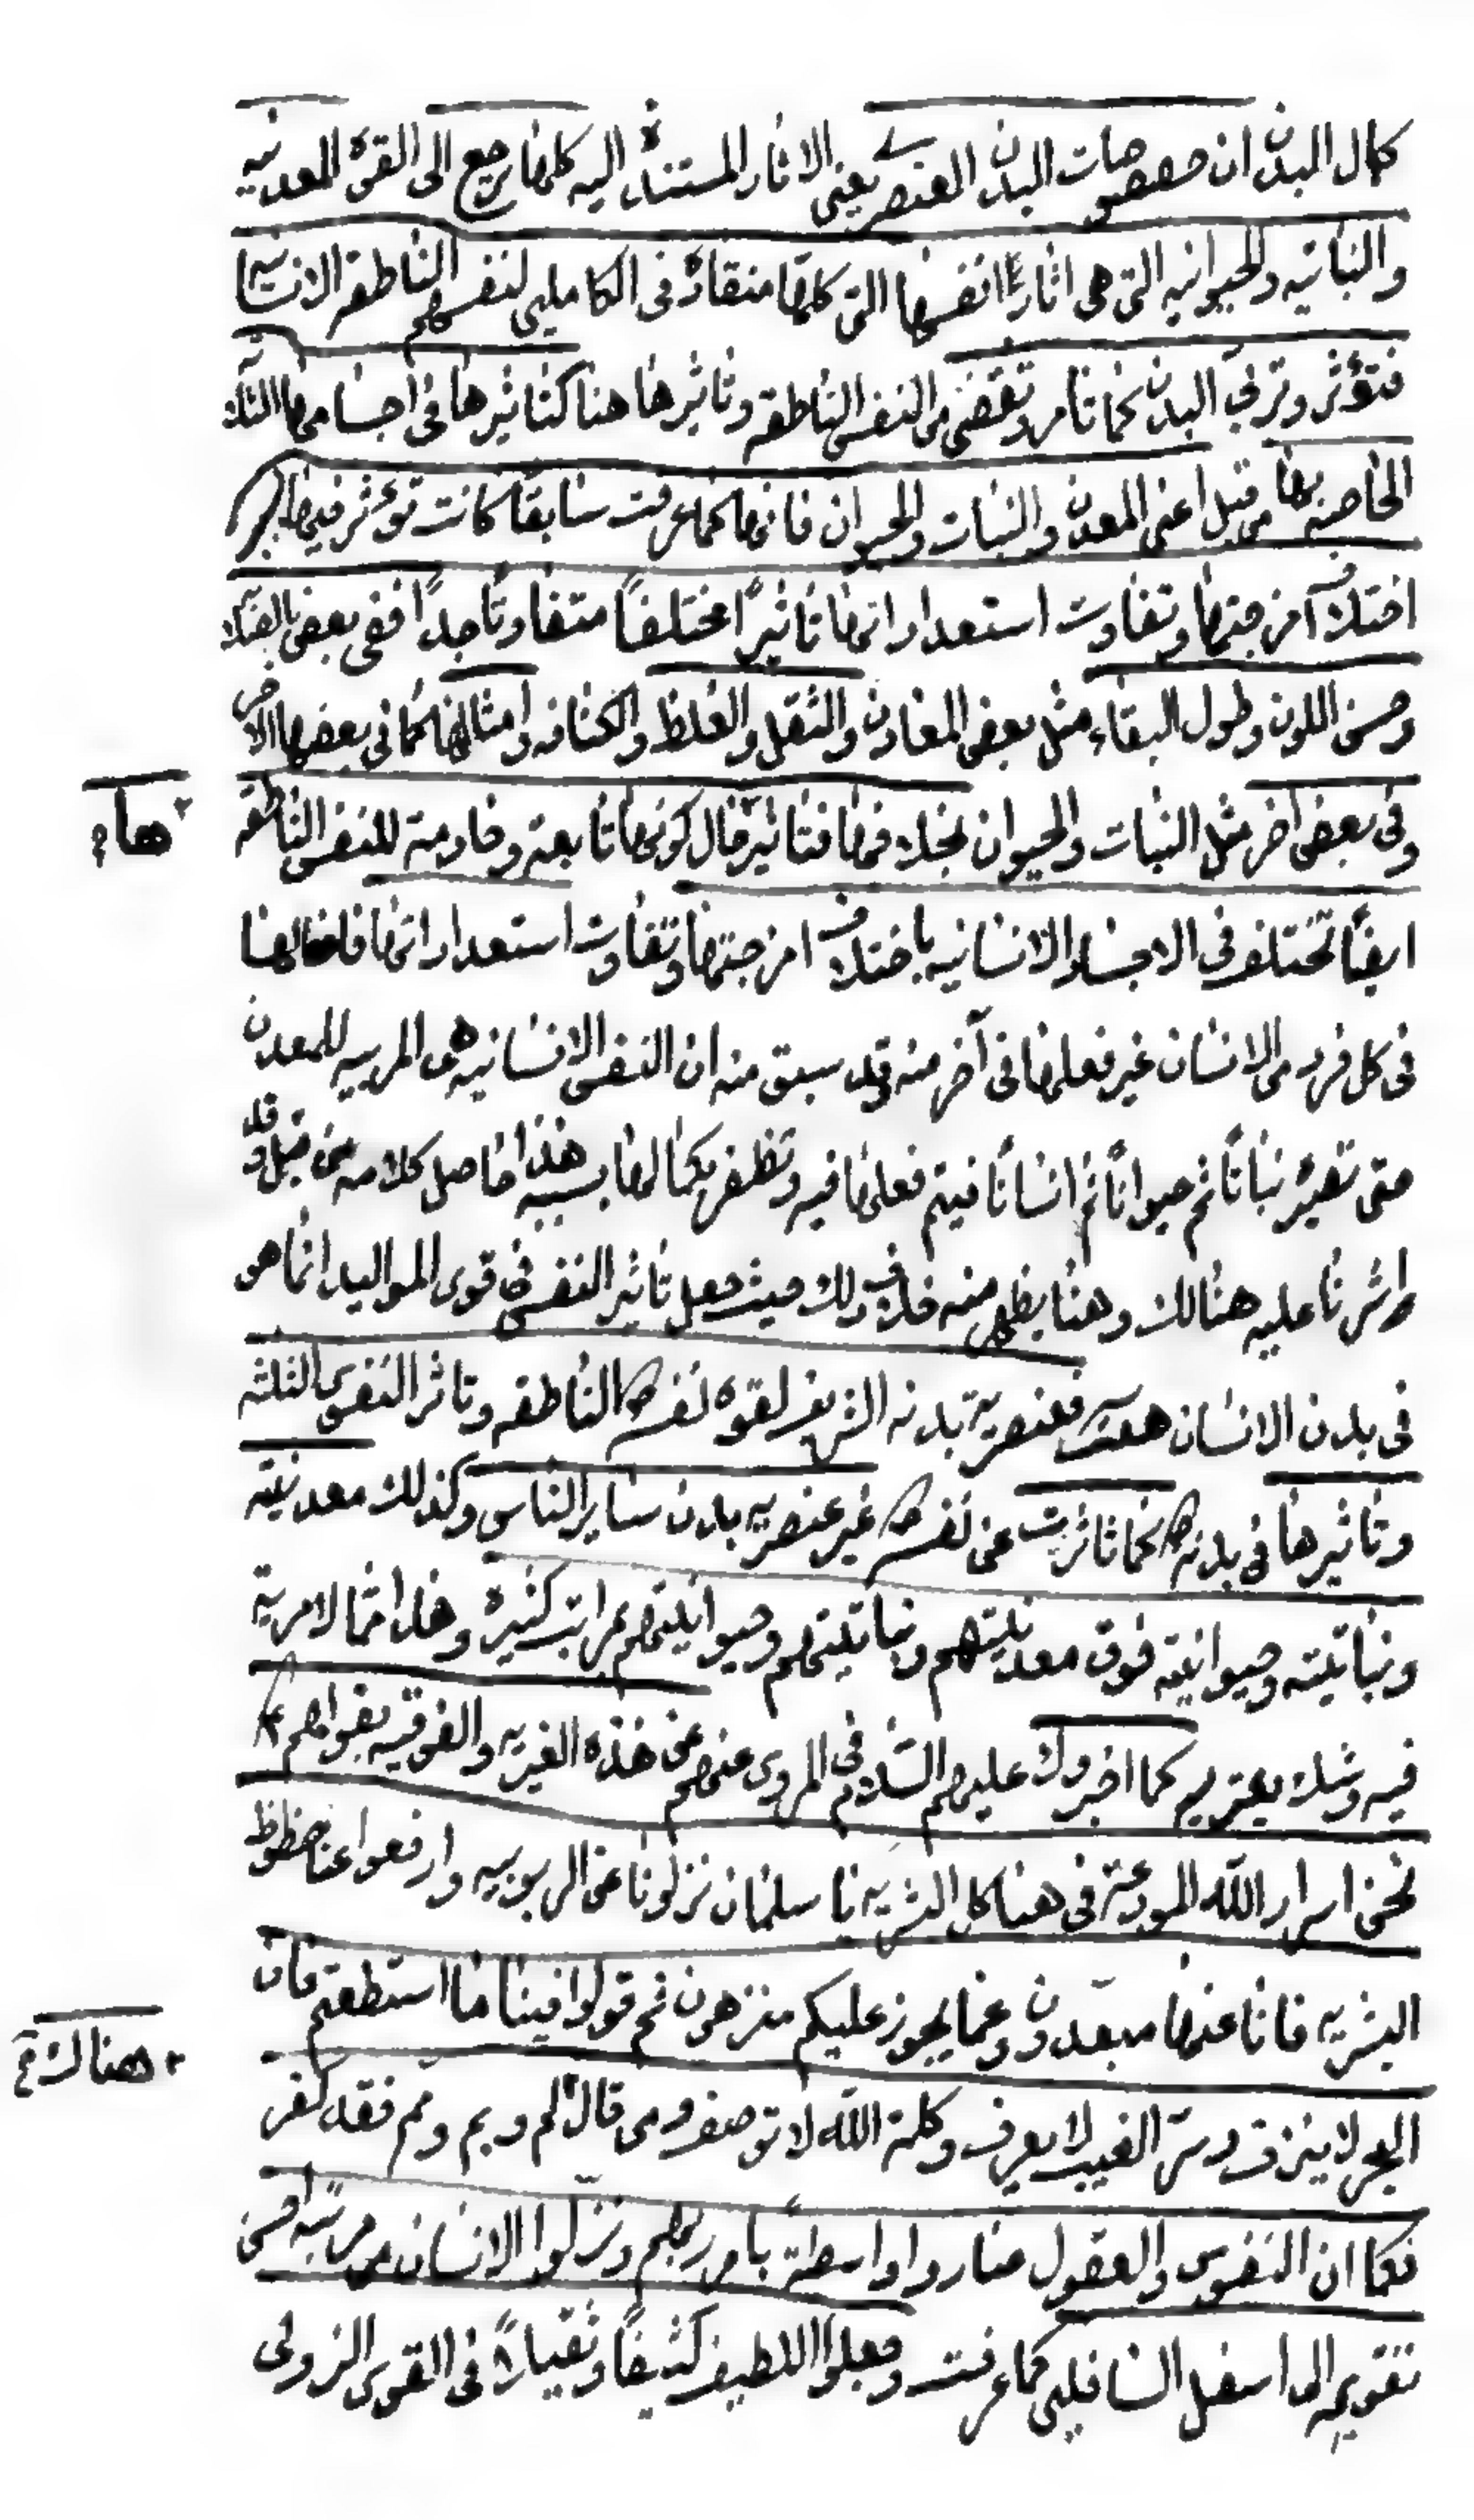 كمال البدن ان خصوصيات البدن العنصرى يعنى الاثار المستندة اليه كلها ترجع الى القوة المعدنيه
والنباتيه والحيوانيه التى هى اثار انفسها التى كلها منقادة فى الكاملين لنفسهم الناطقة الانسانية
فتؤثر وتربى البدن كما تامر وتقتضى من النفس الناطقه وتاثيرها هنا كتاثيرها فى اجسامها الثلثة
الخاصة بها من قبل اعنى المعدن والنبات والحيوان فانها كما عرفت سابقاً كانت تؤثر فيها
اختلاف امزجتها وتفاوت استعداداتها تاثيراً مختلفاً متفاوتاً جداً ففى بعض
وحسن اللون وطول البقاء مثل بعض المعادن والثقل والغلظ والكثافه وامثالها كما فى بعضها الاخر
وفى بعض اخر مثل النبات والحيوان بخلافها فتاثير حال كونها تابعة وخادمة للنفس الناطقه
هاء
ايضاً تختلف فى الاجساد الانسانيه باختلاف امزجتها وتفاوت استعداداتها
فى كل فرد من الانسان غير فعلها فى آخر منه وقد سبق منه ان النفس الانسانيه هى المربيه للمعدن
حتى تصير نباتاً ثم حيواناً ثم انساناً فيتم فعلها فيه وتظفر بكمالها بسببه هذا حاصل كلامه من قبل وقد
اشرنا عليه هنالك وهنا يظهر منه خلاف ذلك حيث جعل تاثير النفس فى قوى المواليد انما هو
فى بدن الانسان فعنصرية بدنه الشريف لقوة نفسه الناطقه وتاثر النفوس الثلثه
وتاثيرها فى بدنه كما تاثرت عن نفسه غير عنصريه بدن ساير الناس وكذلك معدنيته
ونباتيته وحيوانيته فوق معدنيتهم ونباتيتهم وحيوانيتهم بمراتب كثيرة وهذا مما لا مرية
فيه وشك يعتريه كما اخبروك عليهم السلام فى المروى عنهم عن هذه الغيريه والفوقيه بقولهم ع
نحن اسرار الله المودعة فى هياكل البشريه يا سلمان نزلونا عن الربوبيه وارفعوا عنا حظوظ
البشريه فانا عنها مبعدون وعما يجوز عليكم منزهون ثم قولوا فينا ما استطعتم فان
هنالك
البحر لا ينزف وسر الغيب لا يعرف وكلمة الله لا توصف ومن قال لم وبم ومم فقد كفر
فكما ان النفوس والعقول صاروا واسطة بامر ربهم ونزلوا الانسان من مرتبة احسن
تقويم الى اسفل السافلين كما عرفت وجعلوا اللطيف كثيفاً وثقيلاً فى القوس النزولى